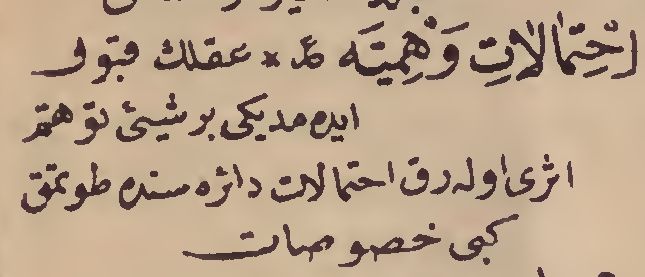 اِحْتِمَالَاتِ وَهْمِيَّه ع * عقلك قبول
ايده مديكى بر شيئ توهم
اثرى اوله رق احتمالات دائره سنده طوتمق
كبى خصوصات